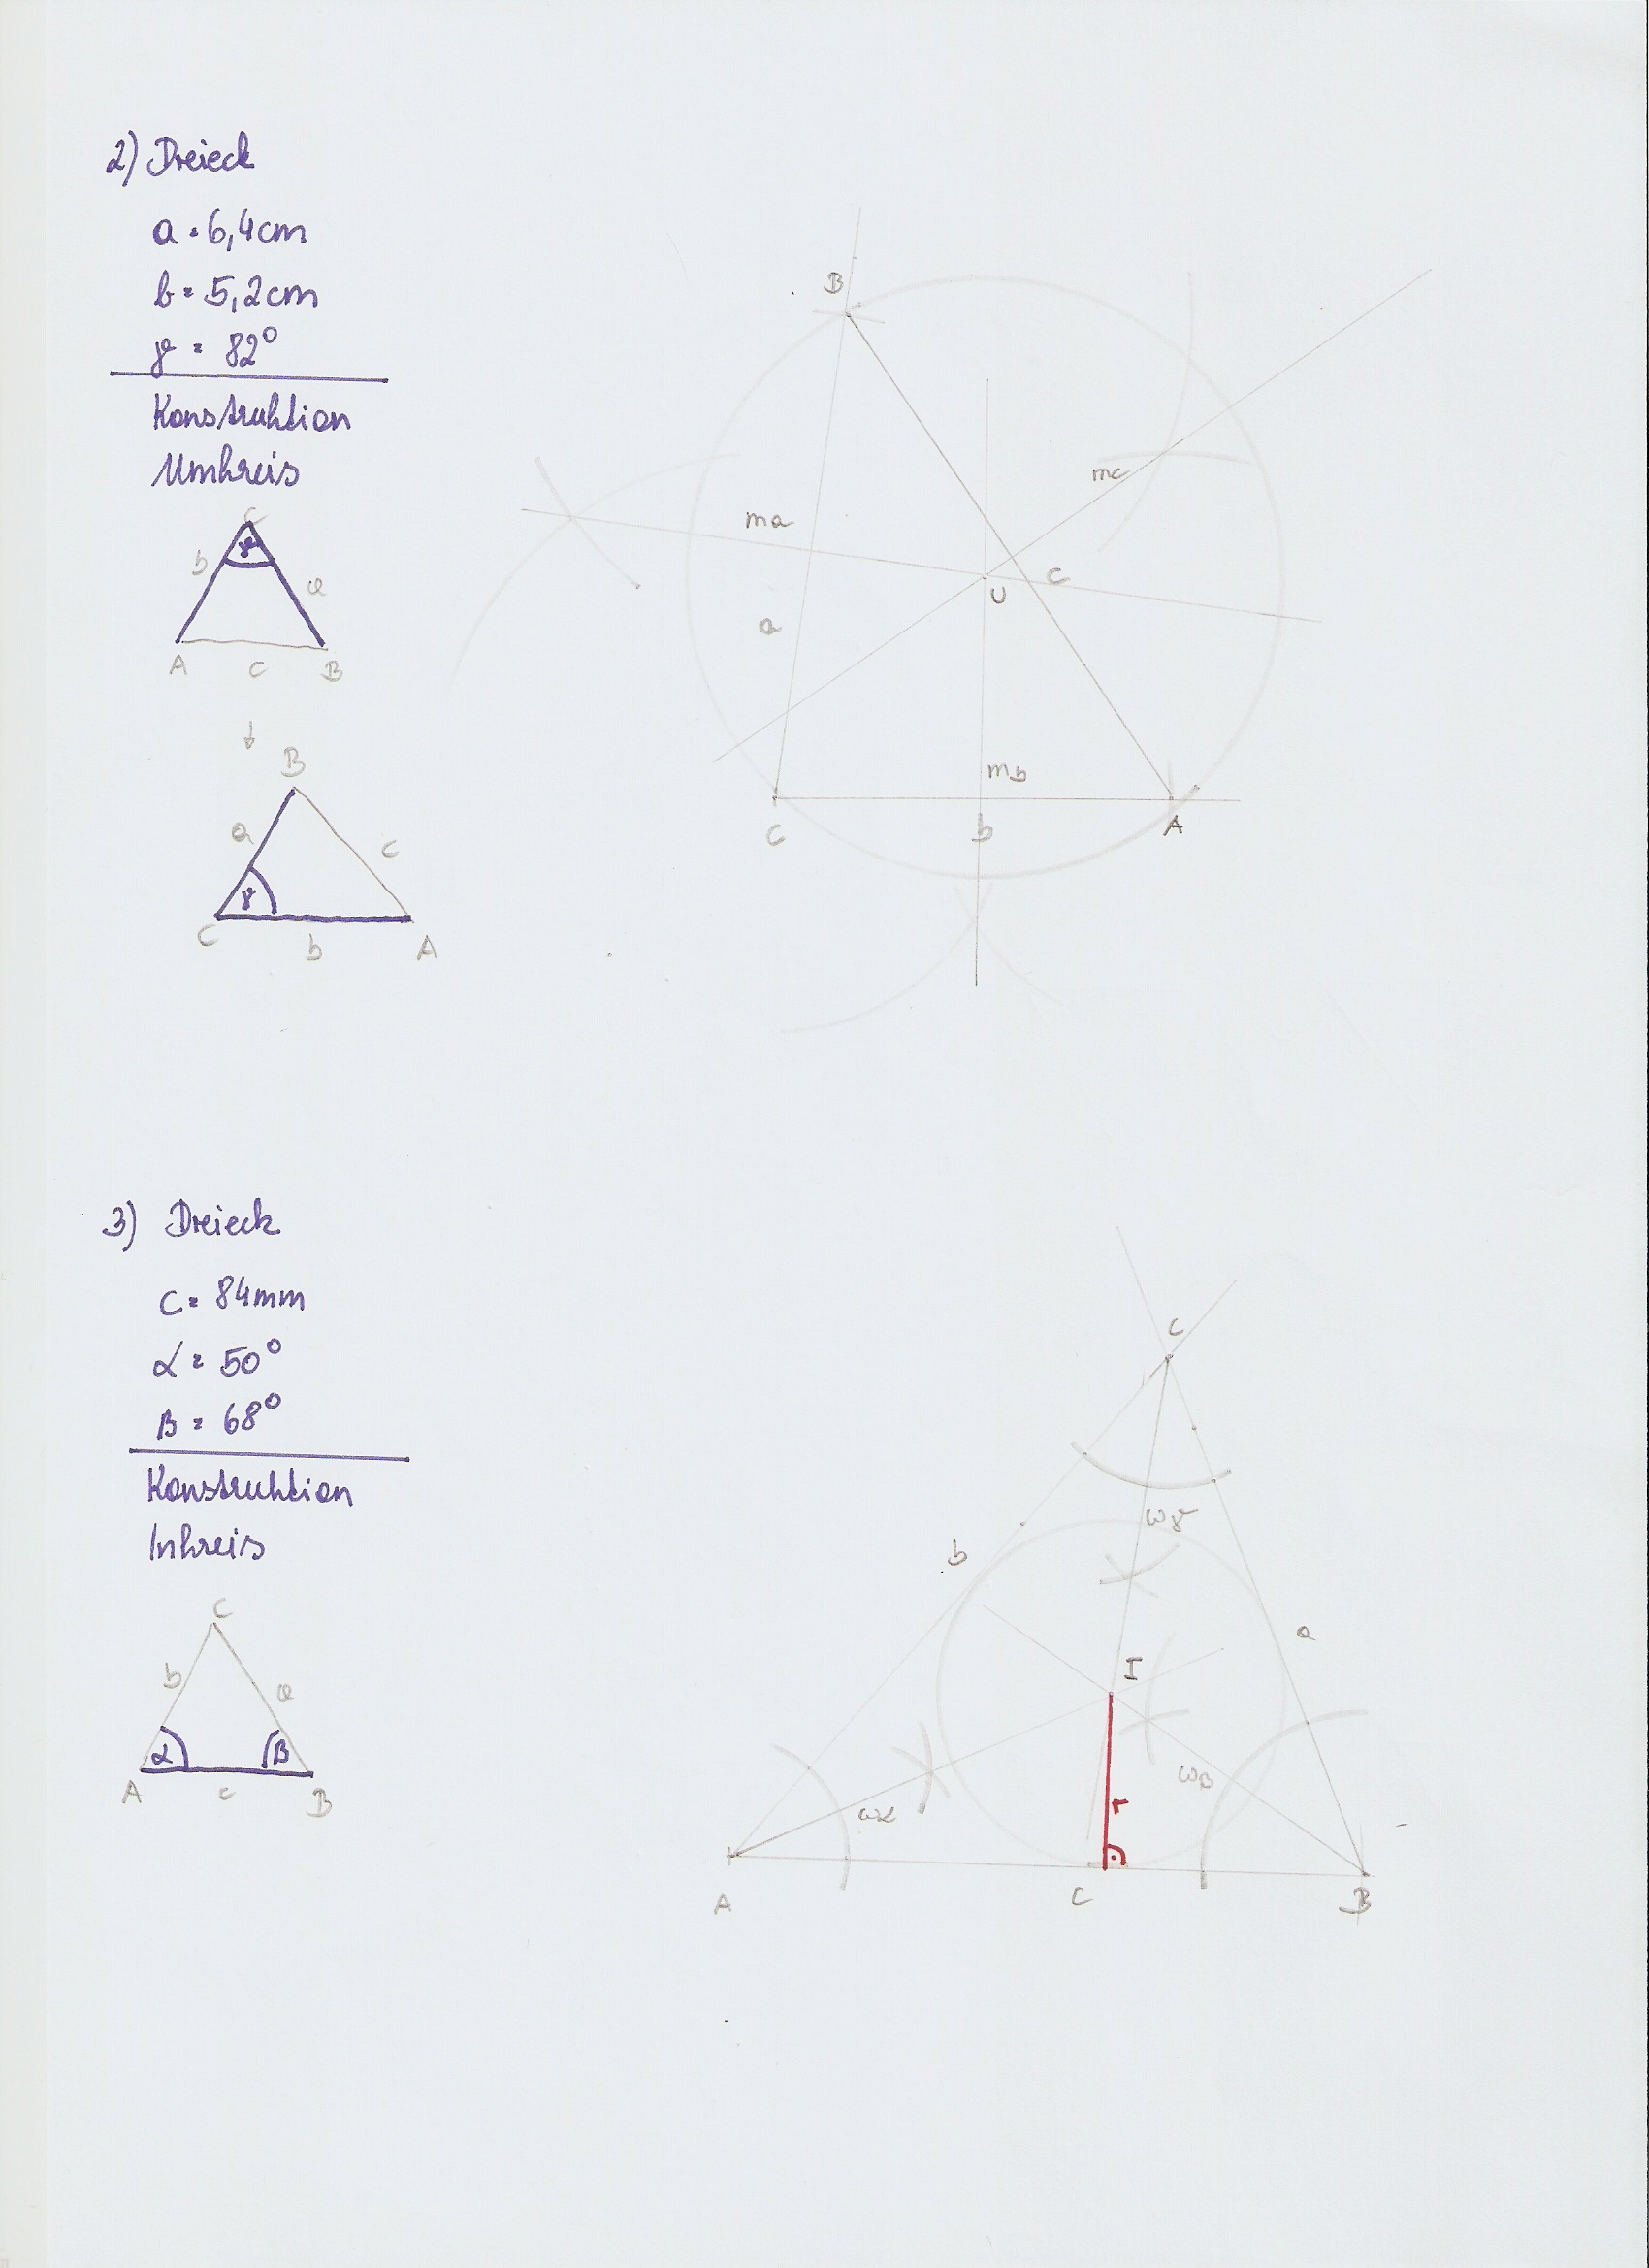 2) Dreieck
a = 6,4cm
b = 5,2cm
γ = 82°
Konstruktion
Umkreis
C
γ
b
a
A
c
B
B
a
c
γ
C
b
A
B
mc
ma
c
U
a
mb
C
b
A
3) Dreieck
c = 84mm
α = 50°
β = 68°
Konstruktion
Inkreis
C
b
a
α
β
A
c
B
C
wγ
b
a
I
wβ
r
wα
A
C
B